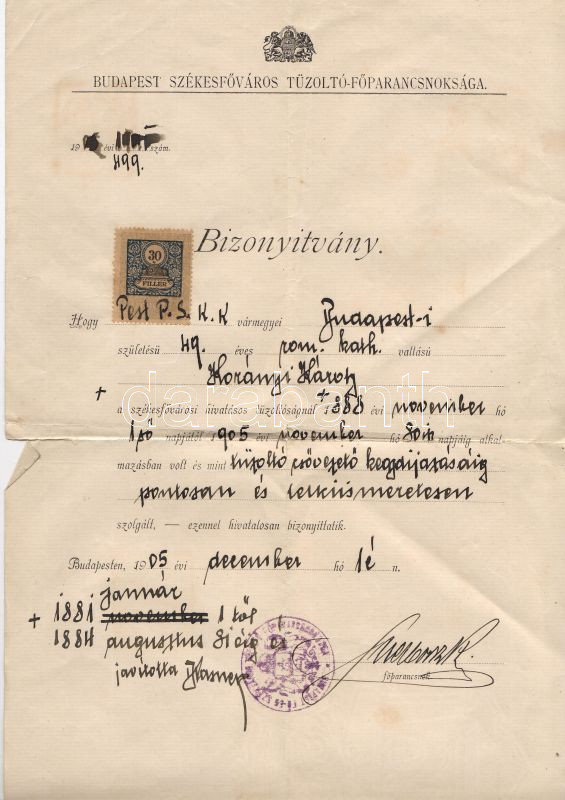 BUDAPEST SZÉKESFŐVÁROS TŰZOLTÓ-FŐPARANCSNOKSÁGA.
19 évi szám.
499.
30
FILLÉR
Bizonyitvány.
Hogy Pest P. S. K. K vármegyei Budapest-i
születésü 49. éves rom. kath. vallású
Korányi Károly
+ a székesfővárosi hivatásos tűzoltóságnál + 1888 évi november hó
1ső napjától 1905 évi november hó 30ik napjáig alkal-
mazásban volt és mint tűzoltó csővezető kegydíjazásáig
pontosan és lelkiismeretesen
szolgált, — ezennel hivatalosan bizonyíttatik.
Budapesten, 1905 évi december hó 1é n.
január
+ 1881 november 1től
1884 augusztus 31éig
javította
főparancsnok